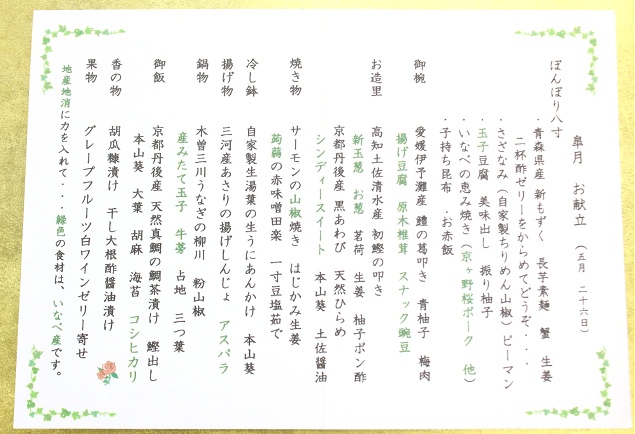 皐月　お献立　（五月　二十六日）
ぼんぼり八寸
・青森県産 新もずく　長芋素麺　蟹　生姜
二杯酢ゼリーをからめてどうぞ・・・
・さざなみ（自家製ちりめん山椒）ピーマン
・玉子豆腐　美味出し　振り柚子
・いなべの恵み焼き（京ヶ野桜ポーク　他）
・子持ち昆布　・お赤飯
御椀　愛媛伊予灘産 鱧の葛叩き　青柚子　梅肉
揚げ豆腐　原木椎茸　スナック豌豆
お造里　高知土佐清水産 初鰹の叩き
新玉葱　お葱　茗荷　生姜　柚子ポン酢
京都丹後産 黒あわび　天然ひらめ
シンディースイート　本山葵　土佐醤油
焼き物　サーモンの山椒焼き　はじかみ生姜
蒟蒻の赤味噌田楽　一寸豆塩茹で
冷し鉢　自家製生湯葉の生うにあんかけ　本山葵
揚げ物　三河産あさりの揚げしんじょ　アスパラ
鍋物　木曽三川うなぎの柳川　粉山椒
産みたて玉子　牛蒡　占地　三つ葉
御飯　京都丹後産 天然真鯛の鯛茶漬け　鰹出し
本山葵　大葉　胡麻　海苔　コシヒカリ
香の物　胡瓜糠漬け　干し大根酢醤油漬け
果物　グレープフルーツ白ワインゼリー寄せ
地産地消に力を入れて・・・緑色の食材は、いなべ産です。